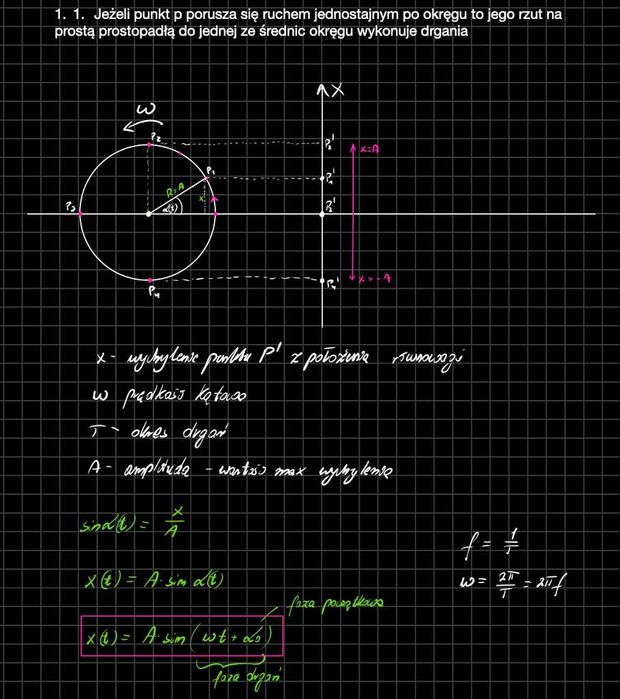 1. 1. Jeżeli punkt p porusza się ruchem jednostajnym po okręgu to jego rzut na
prostą prostopadłą do jednej ze średnic okręgu wykonuje drgania
X
ω
P₂
P₂'
x=A
P₁
P₁'
R=A
x
α(t)
P₃
P₃'
P₄
P₄'
x=-A
x - wychylenie punktu P' z położenia równowagi
ω prędkość kątowa
T - okres drgań
A - amplituda - wartość max wychylenia
sin α(t) = x/A
x(t) = A·sin α(t)
f = 1/T
ω = 2π/T = 2πf
faza początkowa
x(t) = A·sin(ωt + α₀)
faza drgań